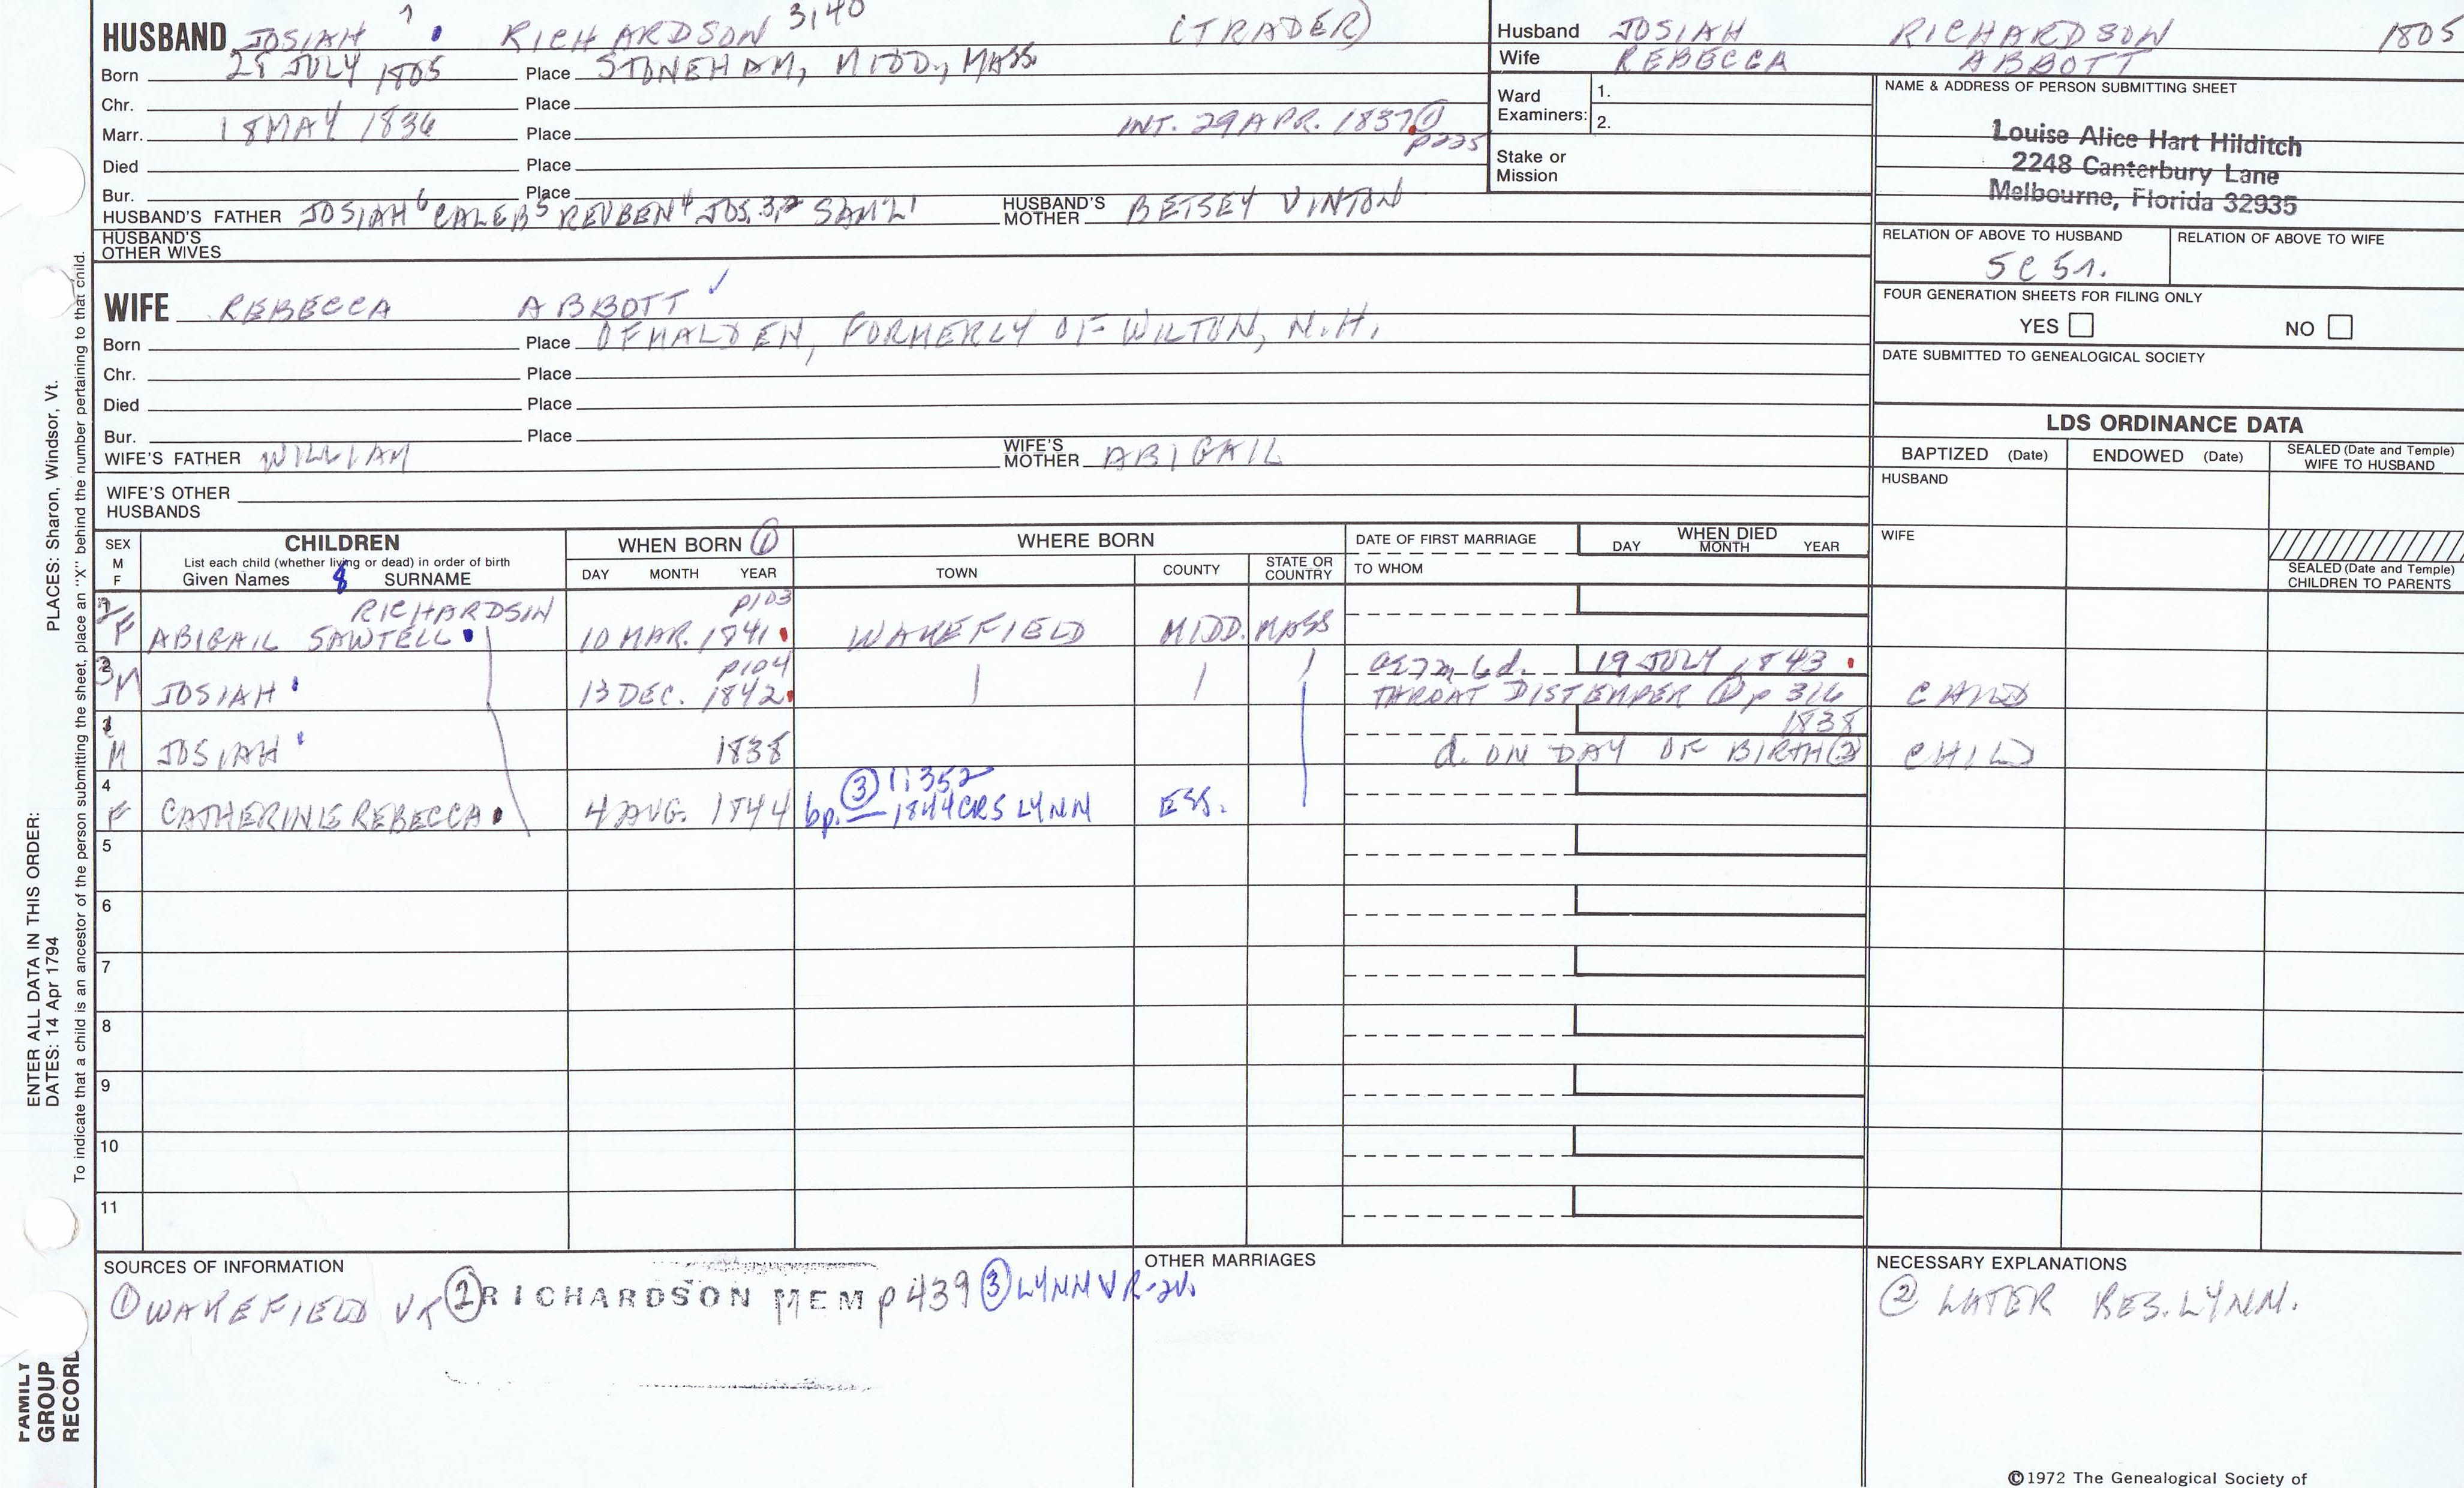 HUSBAND JOSIAH 7 RICHARDSON 3140 (TRADER)
Born 25 JULY 1805 Place STONEHAM, MIDD., MASS.
Chr. Place
Marr. 18 MAY 1836 Place INT. 29 APR. 1837 ① p225
Died Place
Bur. Place
HUSBAND'S FATHER JOSIAH 6 CALEB 5 REUBEN 4 JOS. 3,2 SAM'L 1 HUSBAND'S MOTHER BETSEY VINTON
HUSBAND'S OTHER WIVES
WIFE REBECCA ABBOTT ✓
Born Place OF MALDEN, FORMERLY OF WILTON, N.H.
Chr. Place
Died Place
Bur. Place
WIFE'S FATHER WILLIAM WIFE'S MOTHER ABIGAIL
WIFE'S OTHER HUSBANDS
Husband JOSIAH RICHARDSON 1805
Wife REBECCA ABBOTT
Ward Examiners: 1.
2.
Stake or Mission
NAME & ADDRESS OF PERSON SUBMITTING SHEET
Louise Alice Hart Hilditch
2248 Canterbury Lane
Melbourne, Florida 32935
RELATION OF ABOVE TO HUSBAND RELATION OF ABOVE TO WIFE
5C 5r.
FOUR GENERATION SHEETS FOR FILING ONLY
YES NO
DATE SUBMITTED TO GENEALOGICAL SOCIETY
LDS ORDINANCE DATA
BAPTIZED (Date) ENDOWED (Date) SEALED (Date and Temple) WIFE TO HUSBAND
HUSBAND
WIFE
SEALED (Date and Temple) CHILDREN TO PARENTS
SEX M F
CHILDREN
List each child (whether living or dead) in order of birth
Given Names SURNAME
WHEN BORN ①
DAY MONTH YEAR
WHERE BORN
TOWN COUNTY STATE OR COUNTRY
DATE OF FIRST MARRIAGE
TO WHOM
WHEN DIED
DAY MONTH YEAR
RICHARDSON p103
2 F ABIGAIL SAWTELL 10 MAR. 1841 WAKEFIELD MIDD. MASS
p104 19 JULY 1843
3 M JOSIAH 13 DEC. 1842 THROAT DISTEMPER ① p 316 CHILD
1838
1 M JOSIAH 1838 d. ON DAY OF BIRTH ② CHILD
③ 1:352
4 F CATHERINE REBECCA 4 AUG. 1844 bp. — 1844 CR5 LYNN ESS.
5
6
7
8
9
10
11
SOURCES OF INFORMATION
① WAKEFIELD VR ② RICHARDSON MEM p 439 ③ LYNN VR-2v.
OTHER MARRIAGES
NECESSARY EXPLANATIONS
② LATER RES. LYNN.
©1972 The Genealogical Society of
PLACES: Sharon, Windsor, Vt.
ENTER ALL DATA IN THIS ORDER:
DATES: 14 Apr 1794
To indicate that a child is an ancestor of the person submitting the sheet, place an "X" behind the number pertaining to that child.
FAMILY
GROUP
RECORD